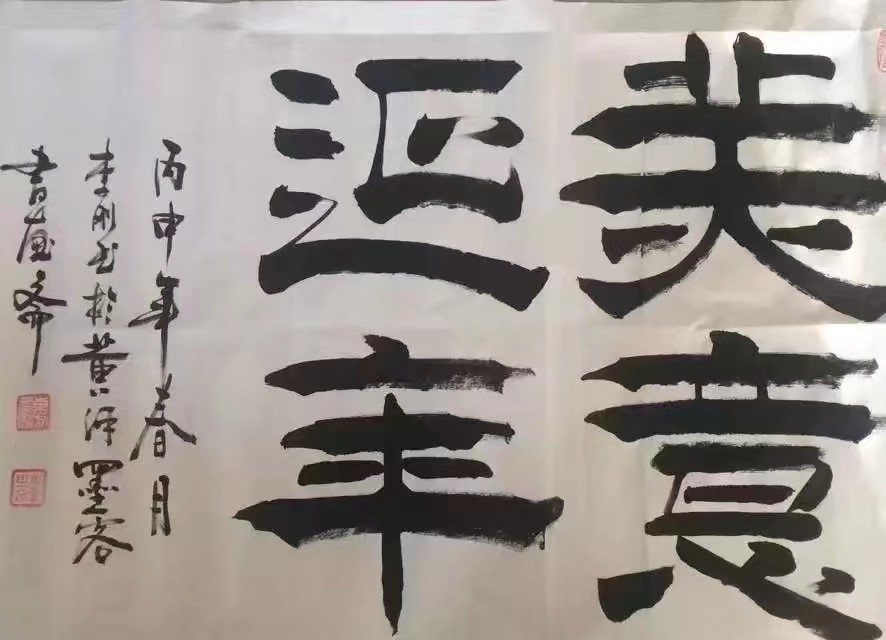 美意
延年
丙申年春月
李刚书於黄墨客
书斋